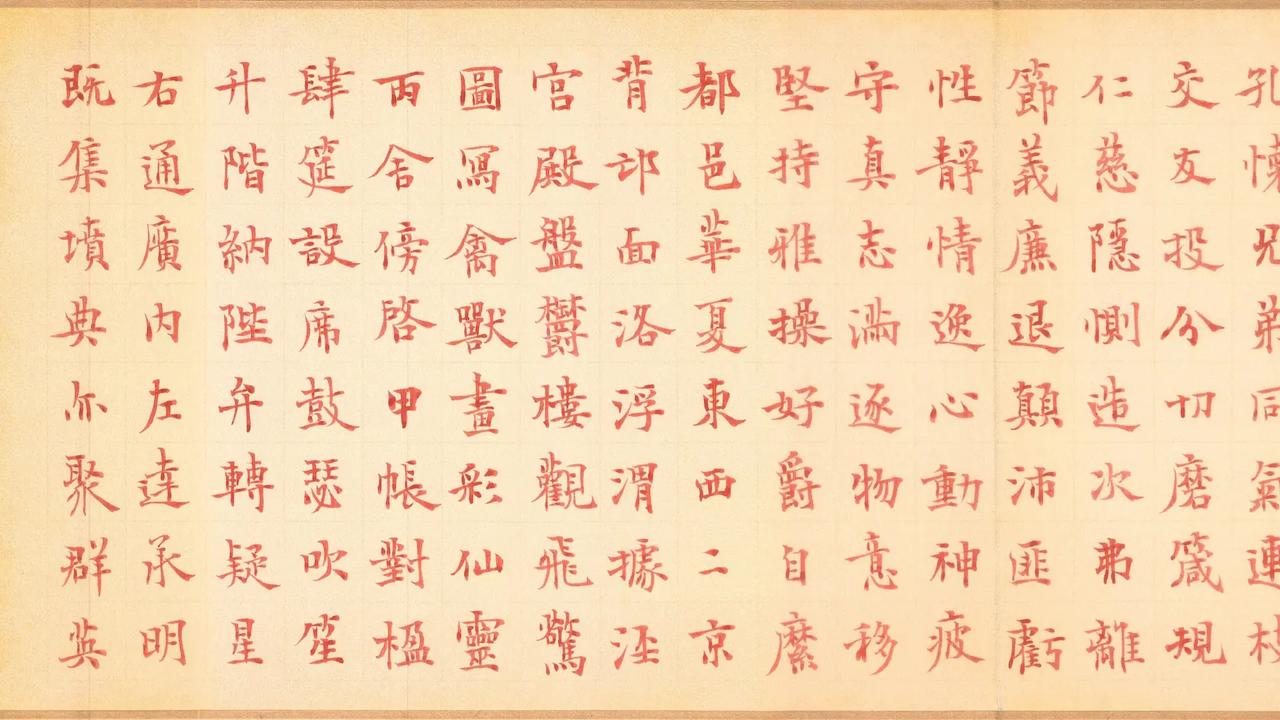 孔懷兄弟同氣連枝
交友投分切磨箴規
仁慈隱惻造次弗離
節義廉退顛沛匪虧
性靜情逸心動神疲
守真志滿逐物意移
堅持雅操好爵自縻
都邑華夏東西二京
背邙面洛浮渭據涇
宮殿盤鬱樓觀飛驚
圖寫禽獸畫彩仙靈
丙舍傍啓甲帳對楹
肆筵設席鼓瑟吹笙
升階納陛弁轉疑星
右通廣內左達承明
既集墳典亦聚群英